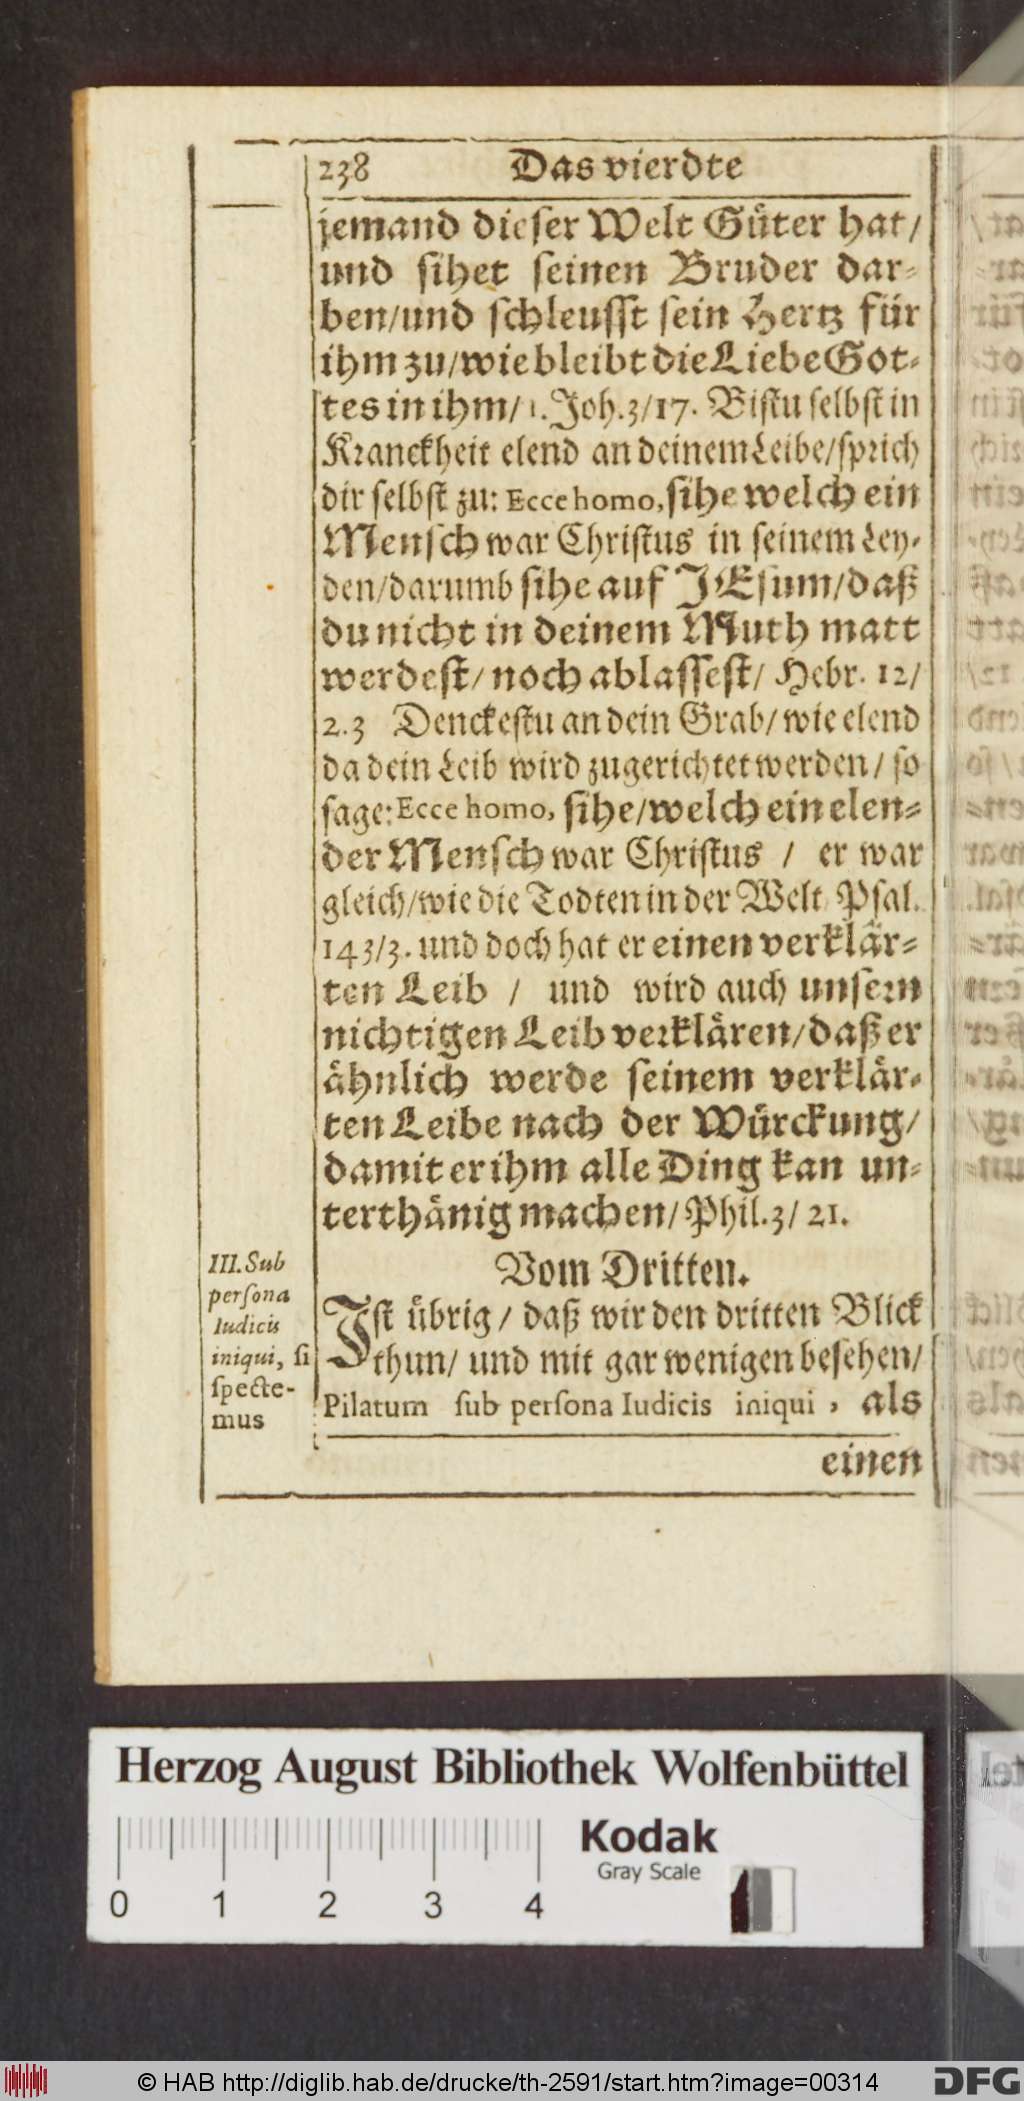 238 Das vierdte
jemand dieser Welt Güter hat/
und sihet seinen Bruder dar-
ben/und schleusst sein Hertz für
ihm zu/wie bleibt die Liebe Got-
tes in ihm/1. Joh.3/17. Bistu selbst in
Kranckheit elend an deinem Leibe/sprich
dir selbst zu: Ecce homo, sihe welch ein
Mensch war Christus in seinem Ley-
den/darumb sihe auf JEsum/daß
du nicht in deinem Muth matt
werdest/noch ablassest/ Hebr. 12/
2.3 Denckestu an dein Grab/wie elend
da dein Leib wird zugerichtet werden/so
sage: Ecce homo, sihe/welch ein elen-
der Mensch war Christus / er war
gleich/wie die Todten in der Welt Psal.
143/3. und doch hat er einen verklär-
ten Leib / und wird auch unsern
nichtigen Leib verklären/daß er
ähnlich werde seinem verklär-
ten Leibe nach der Würckung/
damit er ihm alle Ding kan un-
terthänig machen/Phil.3/21.
Vom Dritten.
III. Sub
persona
Iudicis
iniqui, si
specte-
mus
Ist übrig/ daß wir den dritten Blick
thun/ und mit gar wenigen besehen/
Pilatum sub persona Iudicis iniqui, als
einen
Herzog August Bibliothek Wolfenbüttel
Kodak
Gray Scale
0 1 2 3 4
© HAB http://diglib.hab.de/drucke/th-2591/start.htm?image=00314
DFG